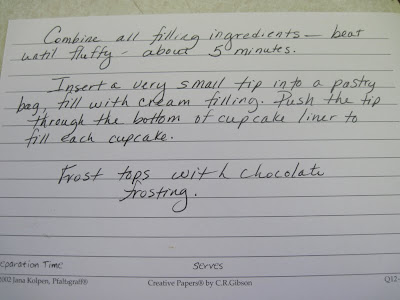 Combine all filling ingredients — beat
until fluffy - about 5 minutes.
Insert a very small tip into a pastry
bag, fill with cream filling. Push the tip
through the bottom of cupcake liner to
fill each cupcake.
Frost tops with chocolate
frosting.
eparation Time serves
2002 Jana Kolpen, Pfaltzgraff® Creative Papers® by C.R.Gibson Q12-